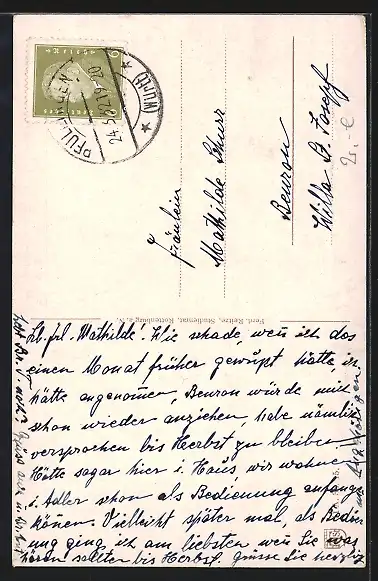 6
PFULLINGEN
(Württ)
Fräulein
Mathilde Schurr
Beuron
Villa B. Josef
25.- €
Ferd. Reitze, Studienrat, Rottenburg a. N.
Lb. frl. Mathilde! Wie schade, wenn ich das
einen Monat früher gewußt hätte, ich
hätte angenommen, Beuron würde mich
schon wieder anziehen, habe nämlich
versprochen bis Herbst zu bleiben
Hätte sogar hier i. Haus wir wohnen
i. Adler schon als Bedienung anfangen
können. Vielleicht später mal, als Bedie
nung ging ich am liebsten wenn Sie was
hören sollten bis Herbst. grüsse Sie herzlich